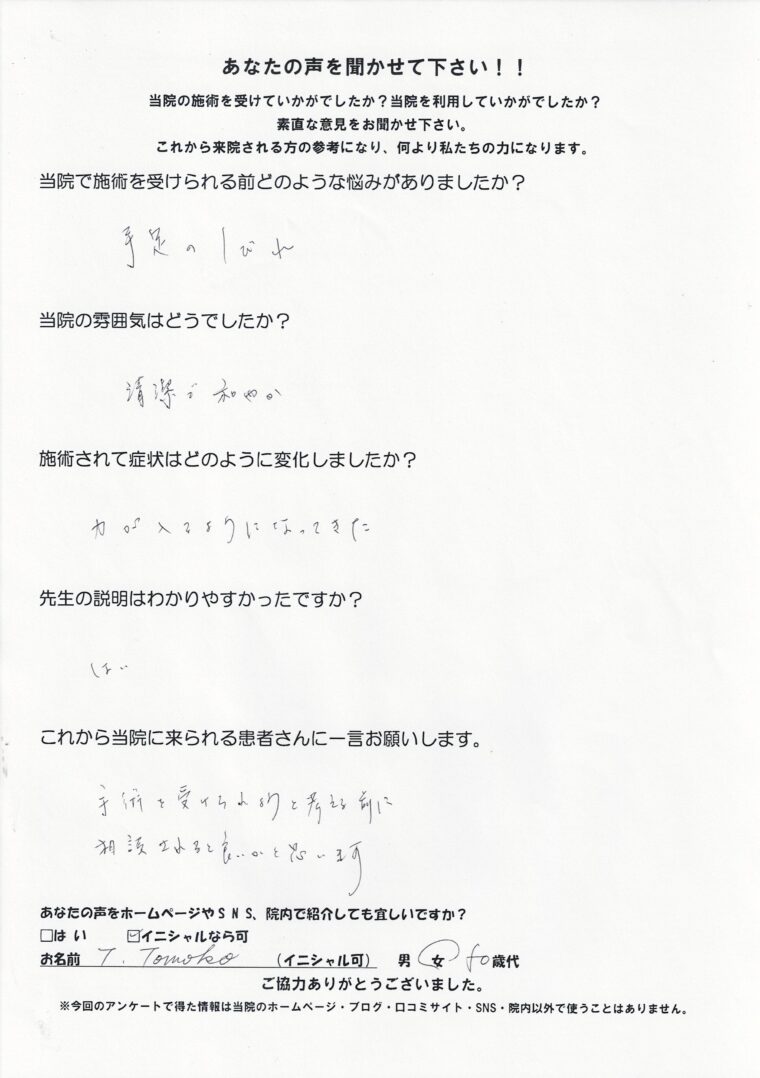 あなたの声を聞かせて下さい！！
当院の施術を受けていかがでしたか？当院を利用していかがでしたか？
素直な意見をお聞かせ下さい。
これから来院される方の参考になり、何より私たちの力になります。
当院で施術を受けられる前どのような悩みがありましたか？
手足のしびれ
当院の雰囲気はどうでしたか？
清潔で和やか
施術されて症状はどのように変化しましたか？
力が入るようになってきた
先生の説明はわかりやすかったですか？
はい
これから当院に来られる患者さんに一言お願いします。
手術を受けられ と考える前に
相談されると良いかと思います
あなたの声をホームページやＳＮＳ、院内で紹介しても宜しいですか？
□はい ☑イニシャルなら可
お名前 T. Tomoko （イニシャル可） 男 女 歳代
ご協力ありがとうございました。
※今回のアンケートで得た情報は当院のホームページ・ブログ・口コミサイト・SNS・院内以外で使うことはありません。